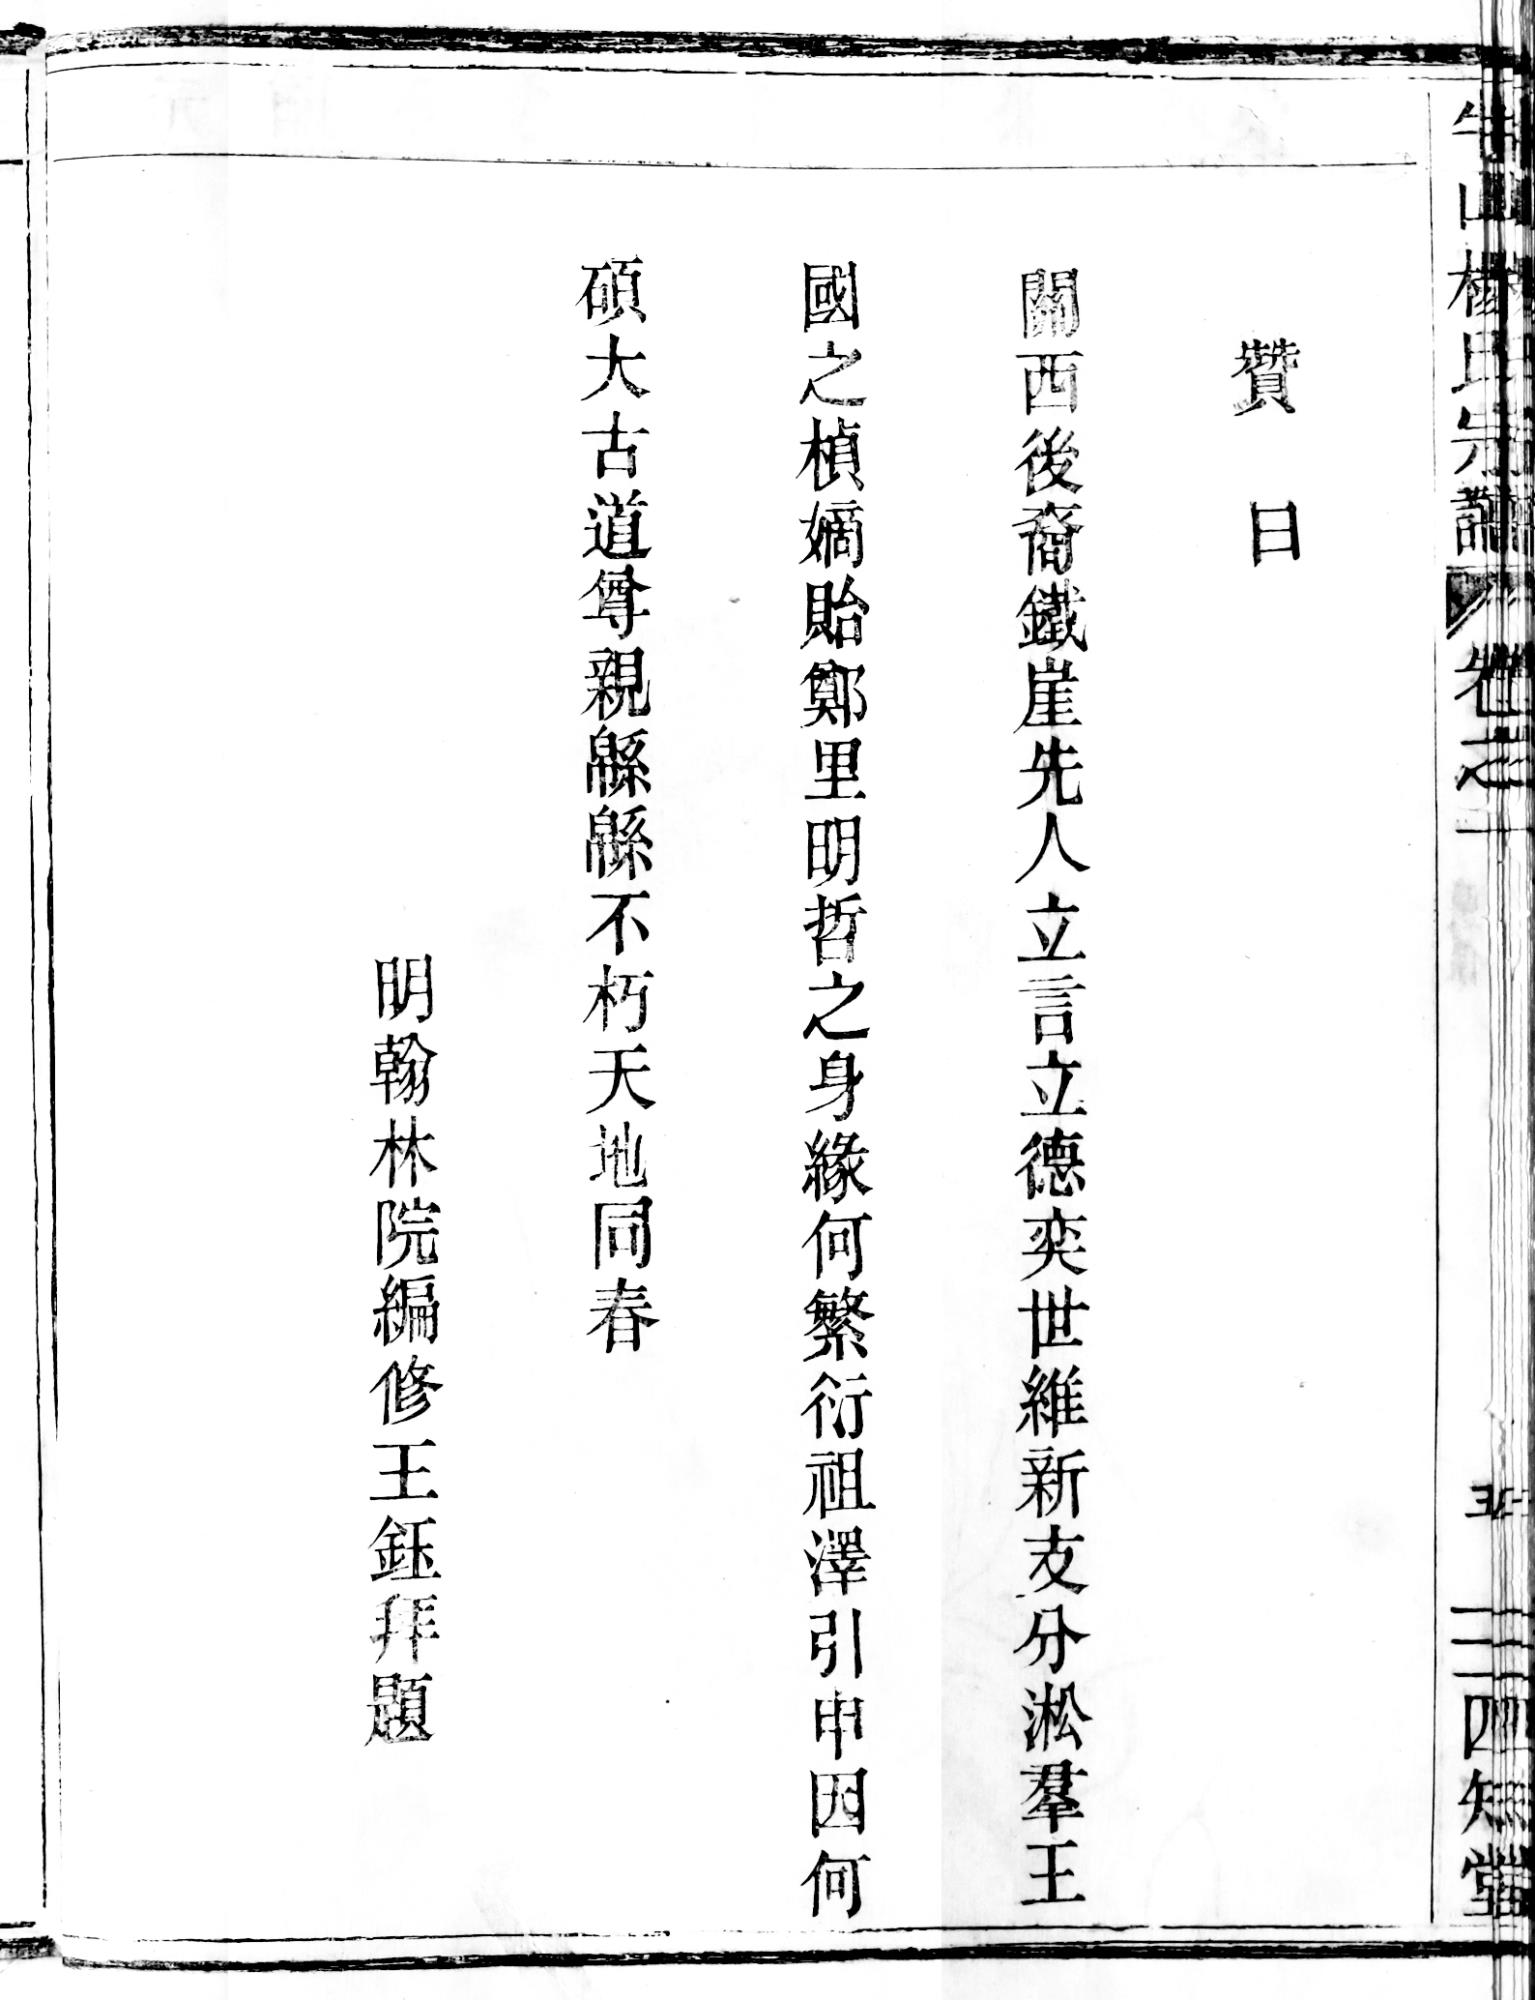 贊曰
關西後裔鐵崖先人立言立德奕世維新支分淞羣王
國之楨嫡貽鄭里明哲之身緣何繁衍祖澤引申因何
碩大古道尊親緜緜不朽天地同春
明翰林院編修王鈺拜題
山楊氏宗譜 卷之一
四知堂